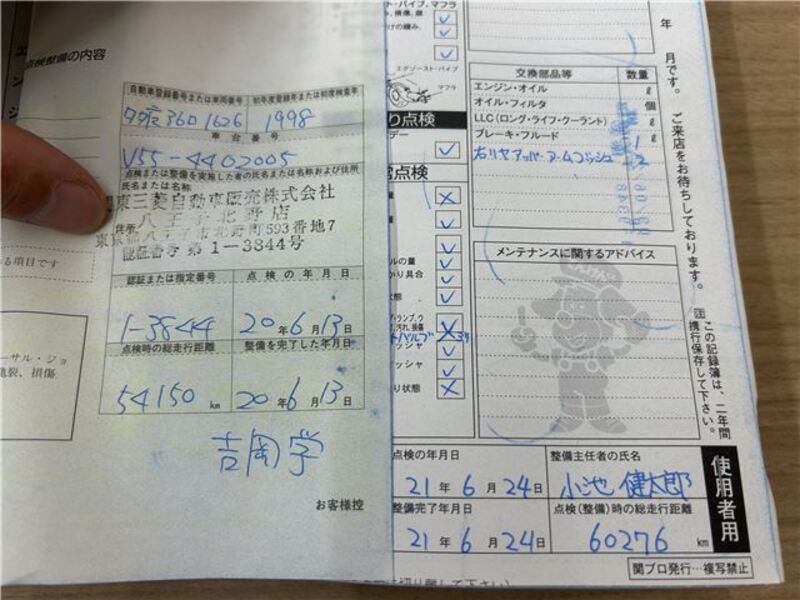 点検整備の内容
自動車登録番号または車両番号
初年度登録年または初度検査年
1626
1998
車台番号
V55-4402005
点検または整備を実施した者の氏名または名称および住所
氏名または名称
関東三菱自動車販売株式会社
八王子北野店
住所
東京都八王子市北野町593番地7
認証番号 第1-3844号
認証または指定番号
点検の年月日
1-3844
20年6月13日
点検時の総走行距離
整備を完了した年月日
54150 km
20年6月13日
吉岡学
お客様控
る項目です
ーサル・ジョ
亀裂、損傷
ト・パイプ、マフラ
エグゾースト・パイプ
マフラ
り点検
デー
点検
ルの量
かり具合
状態
ッシャ
ィッシャ
り状態
交換部品等
数量
エンジン・オイル
ℓ
オイル・フィルタ
個
LLC(ロング・ライフ・クーラント)
ℓ
ブレーキ・フルード
ℓ
右リヤアッパーアームブッシュ
2
メンテナンスに関するアドバイス
年 月です。ご来店をお待ちしております。
注 この記録簿は、二年間
携行保存して下さい。
点検の年月日
整備主任者の氏名
21年6月24日
小池 健太郎
整備完了年月日
点検(整備)時の総走行距離
21年6月24日
60276 km
使用者用
関ブロ発行…複写禁止